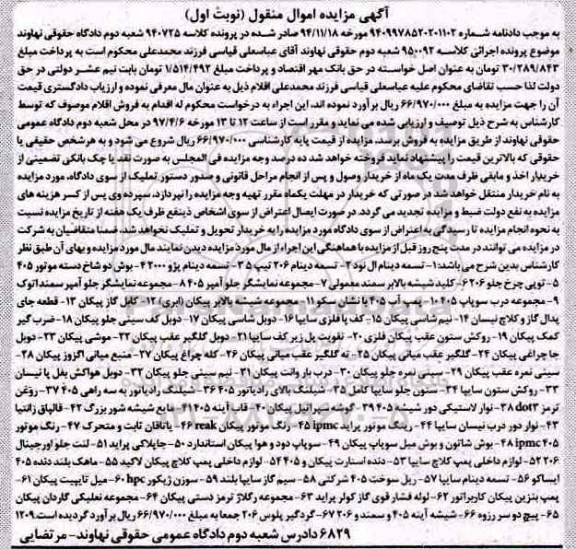 آگهی مزایده اموال منقول (نوبت اول)
به موجب دادنامه شماره ۹۴۰۹۹۷۸۵۲۰۲۰۱۱۰۲ مورخه ۹۴/۱۱/۱۸ صادر شده در پرونده کلاسه ۹۴۰۷۲۵ شعبه دوم دادگاه حقوقی نهاوند
موضوع پرونده اجرائی کلاسه ۹۵۰۰۹۲ شعبه دوم حقوقی نهاوند آقای عباسعلی قیاسی فرزند محمدعلی محکوم است به پرداخت مبلغ
۳۰/۲۸۹/۸۴۳ تومان به عنوان اصل خواسته در حق بانک مهر اقتصاد و پرداخت مبلغ ۱/۵۱۴/۴۹۲ تومان بابت نیم عشر دولتی در حق
دولت لذا حسب تقاضای محکوم علیه عباسعلی قیاسی فرزند محمدعلی اقلام ذیل به عنوان مال معرفی نموده و ارزیاب دادگستری قیمت
آن را جهت مزایده به مبلغ ۶۶/۹۷۰/۰۰۰ ریال برآورد نموده اند، این اجراء به درخواست محکوم له اقدام به فروش اقلام موصوف که توسط
کارشناس به شرح ذیل توصیف و ارزیابی شده می نماید و مقرر است از ساعت ۱۲ تا ۱۳ مورخه ۹۷/۴/۶ در محل شعبه دوم دادگاه عمومی
حقوقی نهاوند از طریق مزایده به فروش برسد. مزایده از قیمت پایه کارشناسی ۶۶/۹۷۰/۰۰۰ ریال شروع می شود و به هر شخص حقیقی یا
حقوقی که بالاترین قیمت را پیشنهاد نماید فروخته خواهد شد ده درصد وجه مزایده فی المجلس به صورت نقد یا چک بانکی تضمینی از
خریدار اخذ و مابقی ظرف مدت یک ماه از خریدار وصول و پس از انجام مراحل قانونی و صدور دستور تملیک از سوی دادگاه، مورد مزایده
به نام خریدار منتقل خواهد شد. در صورتی که خریدار در مهلت یکماه مقرر تهیه وجه مزایده را نپردازد، سپرده وی پس از کسر هزینه های
مزایده به نفع دولت ضبط و مزایده تجدید می گردد. در صورت ایصال اعتراض از سوی اشخاص ذینفع ظرف یک هفته از تاریخ مزایده نسبت
به نحوه انجام مزایده تا رسیدگی به اعتراض از سوی دادگاه مورد مزایده را به خریدار تحویل و تملیک نخواهد شد. ضمنا متقاضیان به شرکت
در مزایده می توانند در مدت پنج روز قبل از مزایده با هماهنگی این اجراء از مال مورد مزایده دیدن نمایند مال مورد مزایده و بهای آن طبق نظر
کارشناس بدین شرح می باشد: ۱- تسمه دینام ال نود ۲- تسمه دینام ۲۰۶ تیپ ۵ ۳- تسمه دینام پژو ۲۰۰۰ ۴- بوش دو شاخ دسته موتور ۴۰۵
۵- توپی چرخ جلو ۲۰۶ ۶- کلید شیشه بالابر سمند معمولی ۷- مجموعه نمایشگر جلو آمپر ۴۰۵ ۸- مجموعه نمایشگر جلو آمپر سمند اتوک
۹- مجموعه درب سوپاپ ۴۰۵ ۱۰- پمپ آب ۴۰۵ با نشان سکو ۱۱- مجموعه شیشه بالابر پیکان (ابری) ۱۲- کابل گاز پیکان ۱۳- قطعه جای
پدال گاز و کلاچ نیسان ۱۴- نیم شاسی پیکان ۱۵- کف پا فلزی سایپا ۱۶- دوبل شاسی پیکان ۱۷- دوبل کف سینی جلو پیکان ۱۸- ضرب گیر
کمک پیکان ۱۹- روکش ستون عقب پیکان فلزی ۲۰- تقویت پل زیر کف سایپا ۲۱- دوبل گلگیر عقب پیکان ۲۲- موشی پیکان ۲۳- دوبل
جا چراغی پیکان ۲۴- گلگیر عقب میانی پیکان ۲۵- ته گلگیر عقب میانی پیکان ۲۶- کله چراغ پیکان ۲۷- منبع میانی اگزوز پیکان ۲۸-
سینی نمره عقب پیکان ۲۹- سینی نمره جلو پیکان ۳۰- درب بار وانت پیکان ۳۱- نیم سینی جلو پیکان ۳۲- دوبل هواکش بغل پا نیسان
۳۳- روکش ستون سایپا ۳۴- ستون جلو سایپا کامل ۳۵- شیلنگ بالای رادیاتور ۴۰۵ ۳۶- شیلنگ رادیاتور به سه راهی ۴۰۵ ۳۷- روغن
ترمز dot3 ۳۸- نوار لاستیکی دور شیشه ۴۰۵ ۳۹- گوشتی پرایل پیکان ۴۰- قاب آینه ۴۰۵ ۴۱- مایع شیشه شور بزرگ ۴۲- قالپاق زانتیا
۴۳- نوار دور درب نیسان سایپا ۴۴- رینگ موتور پراید ipmc ۴۵- رنگ موتور پیکان reak ۴۶- یاتاقان ثابت و متحرک ۴۷- رنگ موتور
۴۰۵ ipmc ۴۸- بوش شاتون و بوش میل سوپاپ پیکان ۴۹- سوپاپ دود و هوا پیکان استاندارد ۵۰- چاپلاکی پراید ۵۱- لنت جلو اورجینال
۲۰۶ ۵۲- لوازم داخلی پمپ کلاچ سایپا ۵۳- دنده استارت پیکان و ۴۰۵ ۵۴- لوازم داخلی پمپ کلاچ پیکان لاکید ۵۵- ماهک بلند دنده ۴۰۵
ایساکو ۵۶- تسمه دینام سایپا ۵۷- ریل سوخت ۴۰۵ شرکتی ۵۸- سیم گاز سایپا بلند ۵۹- سوزن ژیکور hpc ۶۰- میل تایپیت پیکان ۶۱-
پمپ بنزین پیکان کاربراتور ۶۲- لوله فشار قوی گاز کولر پراید ۶۳- مجموعه رگلاژ ترمز دستی پیکان ۶۴- مجموعه تعلیکی گاردان پیکان
۶۵- پیچ دو سر رزوه ۶۶- شیشه آینه ۴۰۵ و سمند و ۲۰۶ ۶۷- گردگیر پلوس ۲۰۶ جمعا به مبلغ ۶۶/۹۷۰/۰۰۰ ریال برآورد گردیده است. ۱۲۰۹
۶۸۲۹ دادرس شعبه دوم دادگاه عمومی حقوقی نهاوند- مرتضایی